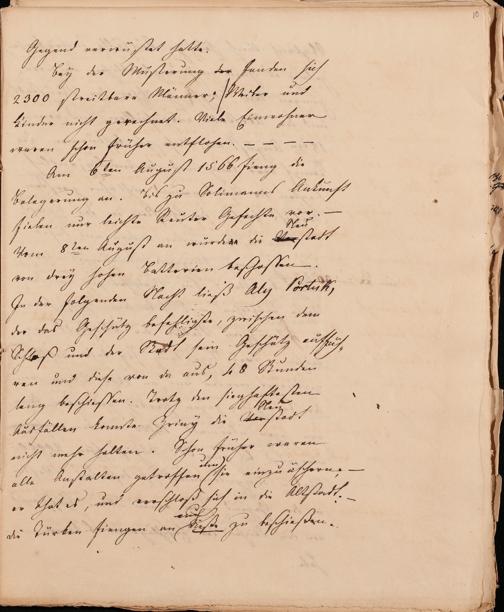 10
Gegend verwüstet hatte.
Bey der Musterung der fanden sich
2300 streitbare Männer; Weiber und
Kinder nicht gerechnet. Viele Einwohner
waren schon früher entflohen. – – – –
Am 6ten August 1566 fieng die
Belagerung an. Bis zu Solimanns Ankunft
fielen nur leichte Reuter Gefechte vor. –
Vom 8ten August an wurden die Neustadt
von drey hohen Batterien beschossen.
In der folgenden Nacht ließ Aly Portuk,
der das Geschütz befehligte, zwischen dem
Schloß und der Stadt sein Geschütz auffüh,
ren und diese von da aus, 48 Stunden
lang beschiessen. Trotz den sieghaftesten
Ausfällen konnte Zriny die Neustadt
nicht mehr halten. Schon früher waren
alle Anstalten getroffen um sie einzuäschern. –
er that es, und verschloß sich in die Altstadt. –
die Türken fiengen an auch diese zu beschießen.